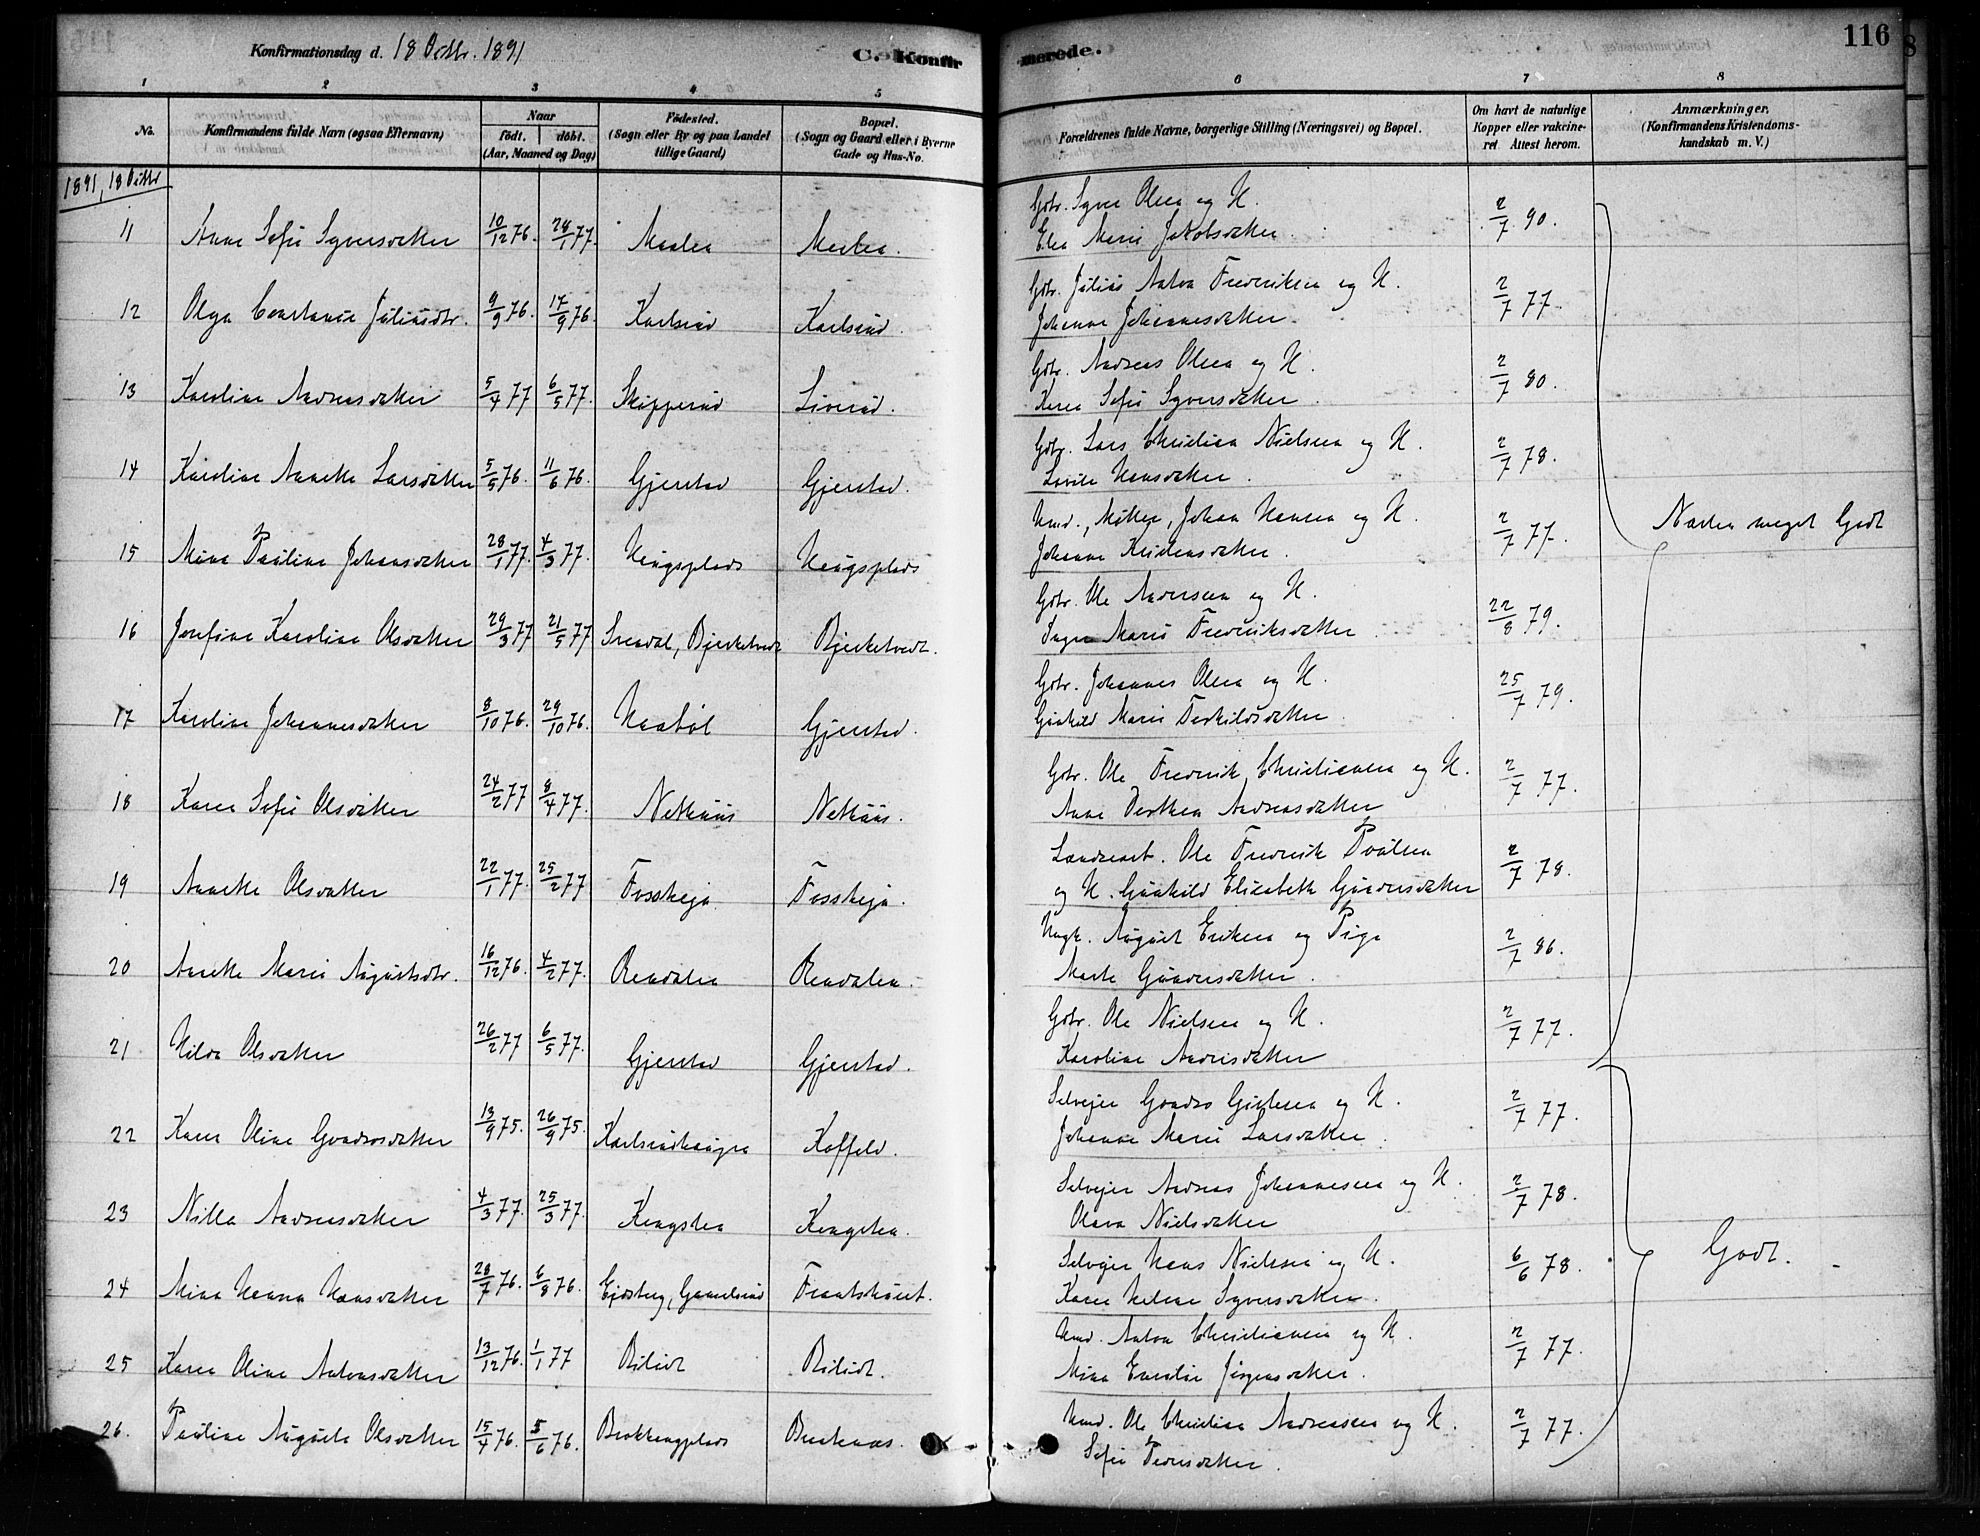 Konfirmationsdag d. 18 Octbr. 1891
C. Konfir
merede.
116
1 2 3 4 5 6 7 8
No.
Konfirmandens fulde Navn (ogsaa Efternavn)
Naar
født. døbt.
(Aar, Maaned og Dag)
Fødested.
(Sogn eller By og paa Landet
tillige Gaard)
Bopæl.
(Sogn og Gaard eller i Byerne
Gade og Hus-No.
Forældrenes fulde Navne, borgerlige Stilling (Næringsvei) og Bopæl.
Om havt de naturlige
Kopper eller vakcine-
ret Attest herom.
Anmærkninger.
(Konfirmandens Kristendoms-
kundskab m. V.)
1891, 18 Octbr
11 Anne Sofie Syversdatter 10/12 76. 28/1 77. Maalen
Gbr. Syver Olsen og H.
Elen Marie Jakobsdatter. 2/7 90.
12 Olga Constance Juliusdtr. 9/9 76. 17/9 76. Karlsrud Karlsrud.
Gbr. Julius Anton Fredriksen og H.
Johanne Johannesdatter. 2/7 77.
13 Karoline Andreasdatter 5/4 77 6/5 77. Skipperud Liverud.
Gbr. Andreas Olsen og H.
Karen Sofie Syversdatter. 2/7 80.
14 Karoline Annette Larsdatter 5/5 76. 11/6 76. Gjerstad Gjerstad.
Gbr. Lars Christian Nielsen og H.
Lovise Hansdatter. 2/7 78.
15 Mina Pauline Johansdatter 28/1 77. 4/3 77.
Hmd., Møller, Johan Hansen og H.
Johanne Kristensdatter. 2/7 77.
Næsten meget Godt
16 Josefine Karoline Olsdatter 29/3 77 21/5 77 Svendal, Bjerketvedt Bjerketvedt.
Gbr. Ole Andersen og H.
Inger Marie Fredriksdatter 22/8 79.
17 Karoline Johannesdatter 8/10 76. 29/10 76. Haabøl Gjerstad.
Gbr. Johannes Olsen og H.
Gunhild Marie Terkildsdatter 25/7 79.
18 Karen Sofie Olsdatter 24/2 77 8/4 77. Nethuus Nethuus.
Gbr. Ole Fredrik Christiansen og H.
Anne Dorthea Andreasdatter 2/7 77.
19 Annette Olsdatter 22/1 77. 25/2 77
Ole Fredrik Poulsen
og H. Gunhild Elisabeth Gundersdatter 2/7 78.
20 Anette Marie Augustsdtr. 16/12 76. 4/2 77. Rendalen Rendalen.
Ungk. August Eriksen og Pige
Marte Gundersdatter. 2/7 86.
21 Hilda Olsdatter 26/2 77 6/5 77. Gjerstad Gjerstad.
Gbr. Ole Nielsen og H.
Karoline Andrisdatter 2/7 77.
22 Karen Oline Gundrosdatter 13/9 75. 26/9 75. Koffeld.
Selvejer Gundro Gislesen og H.
Johanne Marie Larsdatter. 2/7 77.
23 Nilla Andreasdatter 4/3 77. 25/3 77. Kragsten Kragsten.
Selvejer Andreas Johannesen og H.
Olava Nielsdatter 2/7 78.
Godt.
24 Mina Hanna Hansdatter 28/7 76. 6/8 76. Eidsberg, Gammelsrud
Selvejer Hans Nielsen og H.
Karen Helene Syversdatter. 6/6 78.
25 Karen Oline Antonsdatter 13/12 76. 1/1 77 Bilidt Bilidt.
Hmd. Anton Christiansen og H.
Mina Emilie Jørgensdatter. 2/7 77.
26. Pauline Auguste Olsdatter 15/4 76. 5/6 76.
Hmd. Ole Christian Andreassen og H.
Sofie Pedersdatter. 2/7 77.